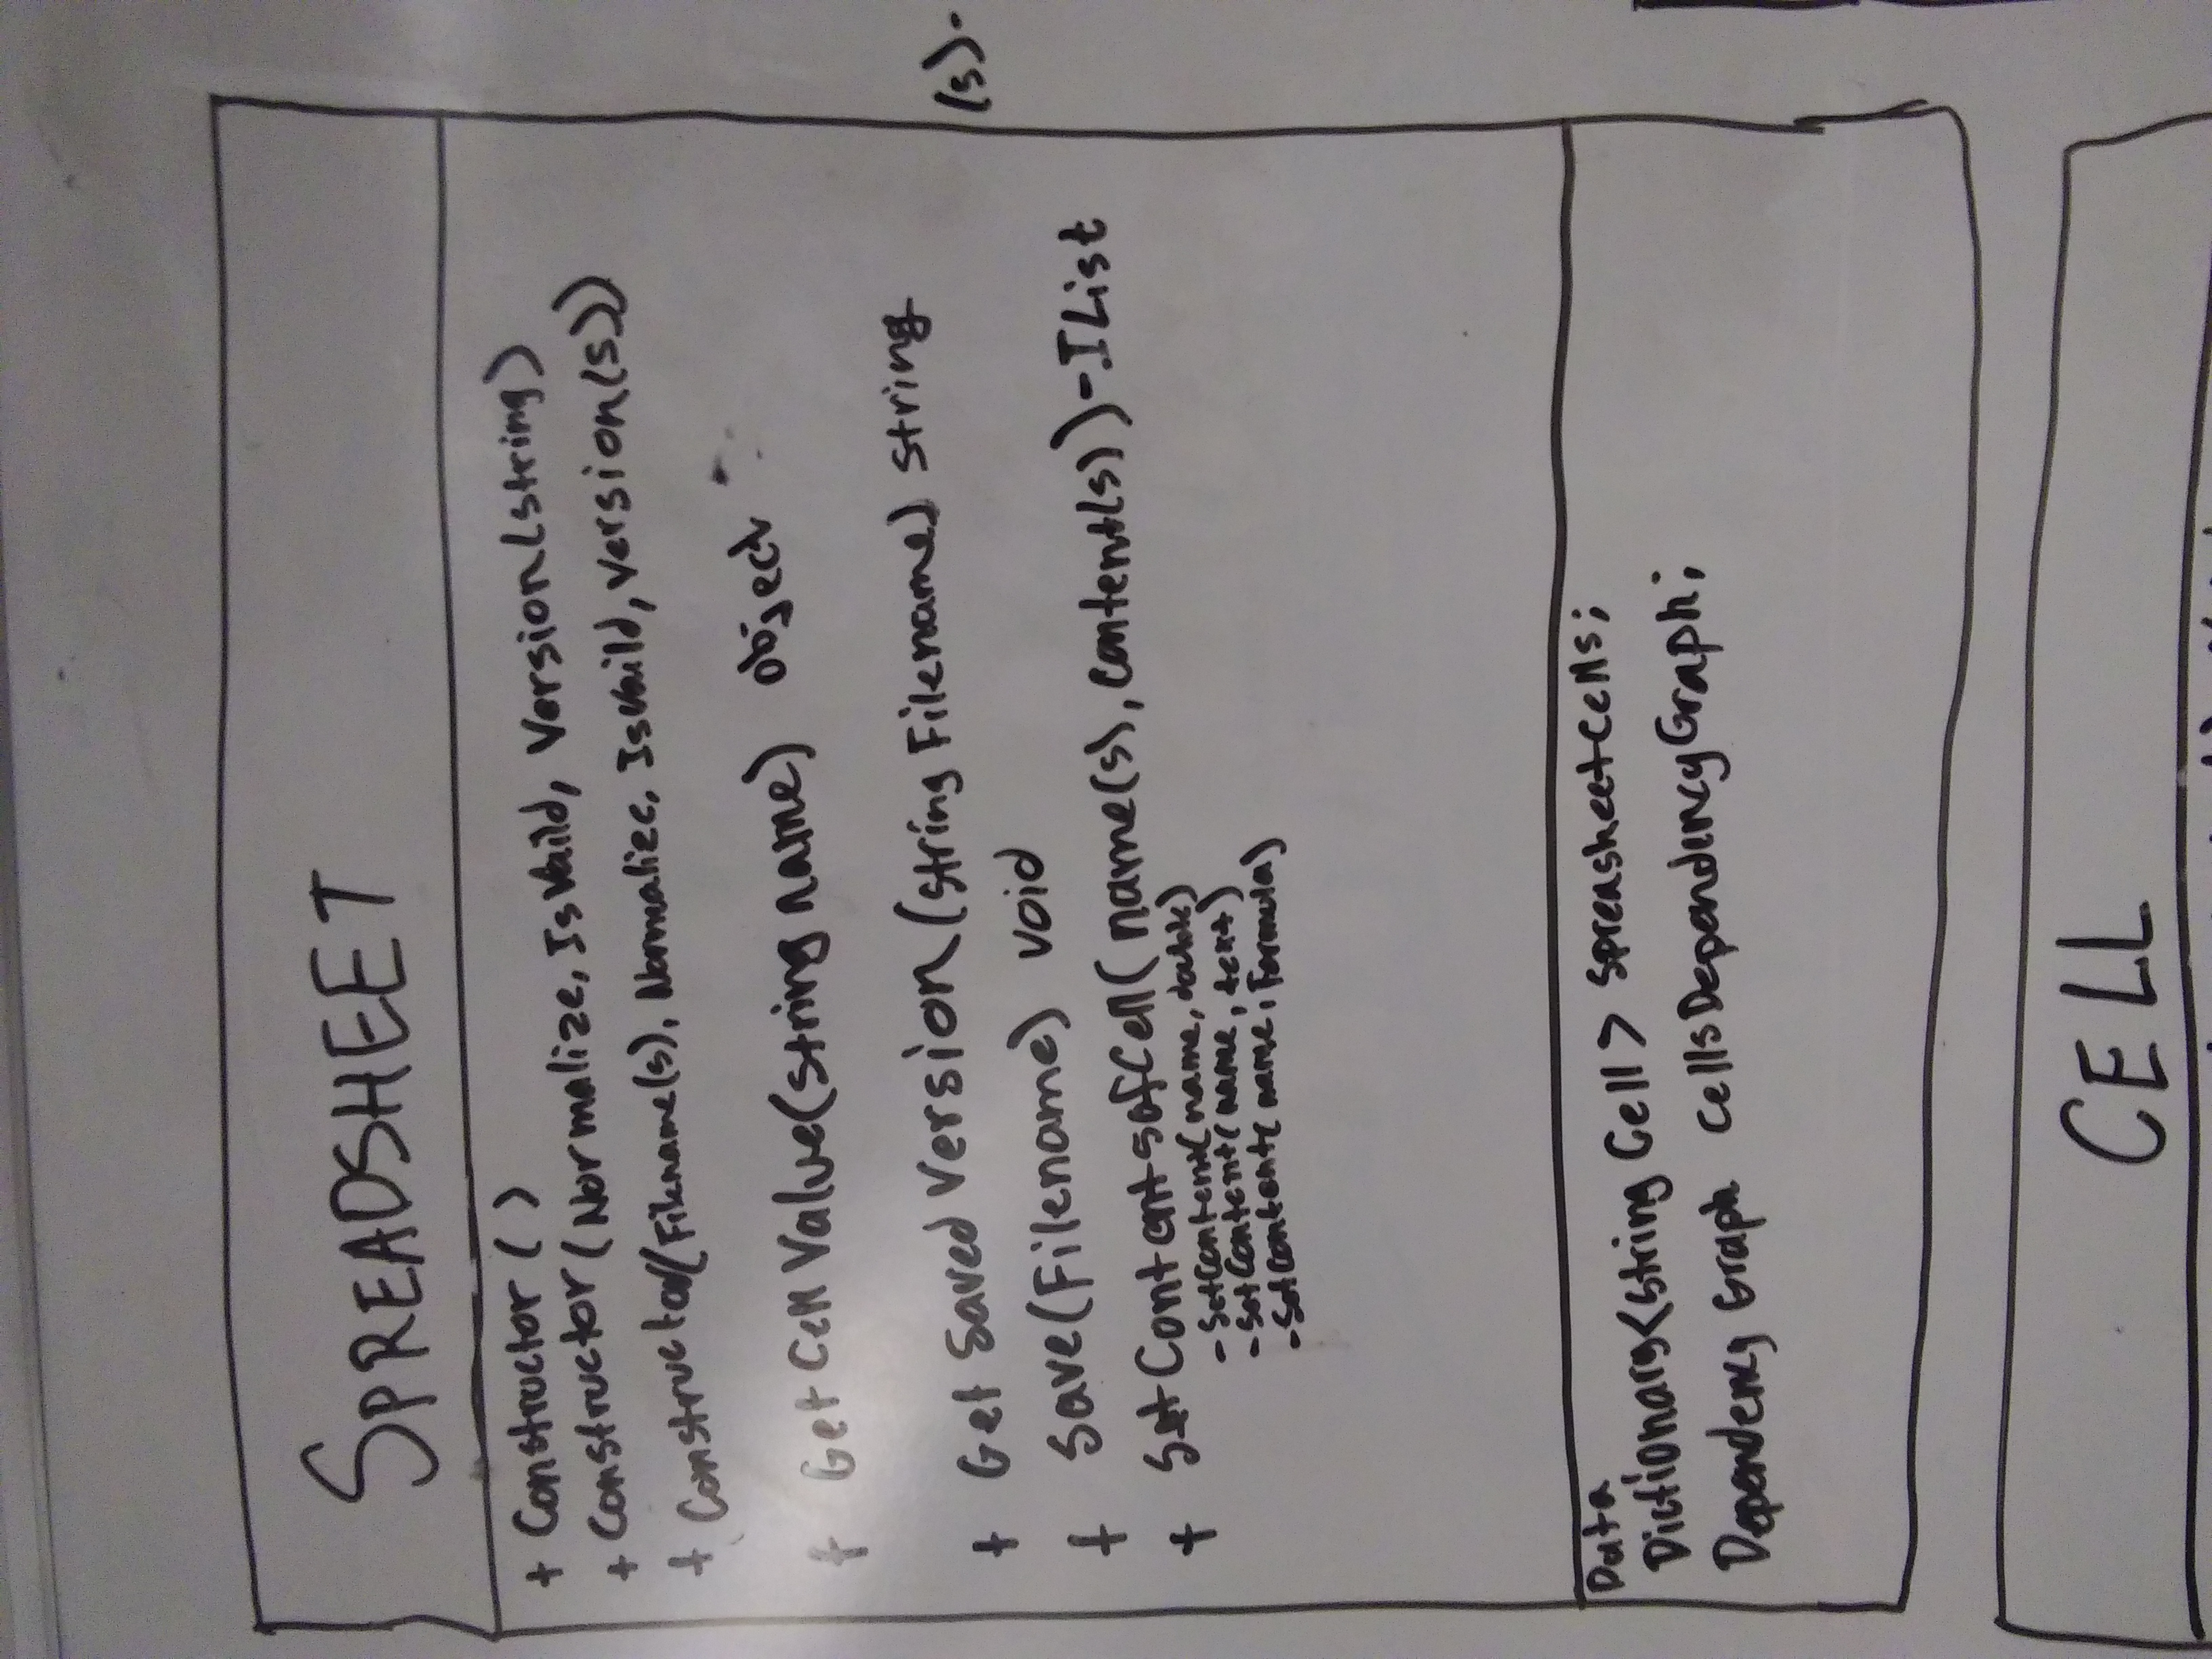 SPREADSHEET
+ Constructor ( )
+ Constructor (Normalize, IsVaild, Version(string)
+ Constructor(Filename(s), Normalize, IsVaild, Version(s))
+ GetCellValue(string name) object
+ Get Saved Version (string Filename) string
(s)-
+ Save(Filename) void
+ SetContentsofCell( name(s), content(s) )-IList
- SetContent( name, double)
- SetContent( name, text)
- SetContent( name, Formula)
Data
Dictionary<string Cell> SpreasheetCells;
Dependency Graph CellsDependencyGraph;
CELL